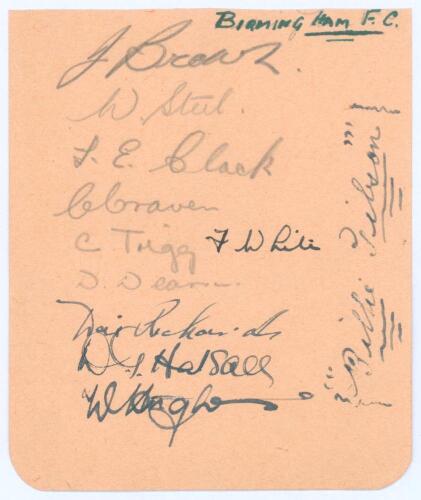 BIRMINGHAM F.C.
J Brown.
W Steel.
F. E. Clack
C Craven
C Trigg
F White
D. Dearson
Dai Richards
W. G. Halsall
W Hughes
"Billie Gibson"